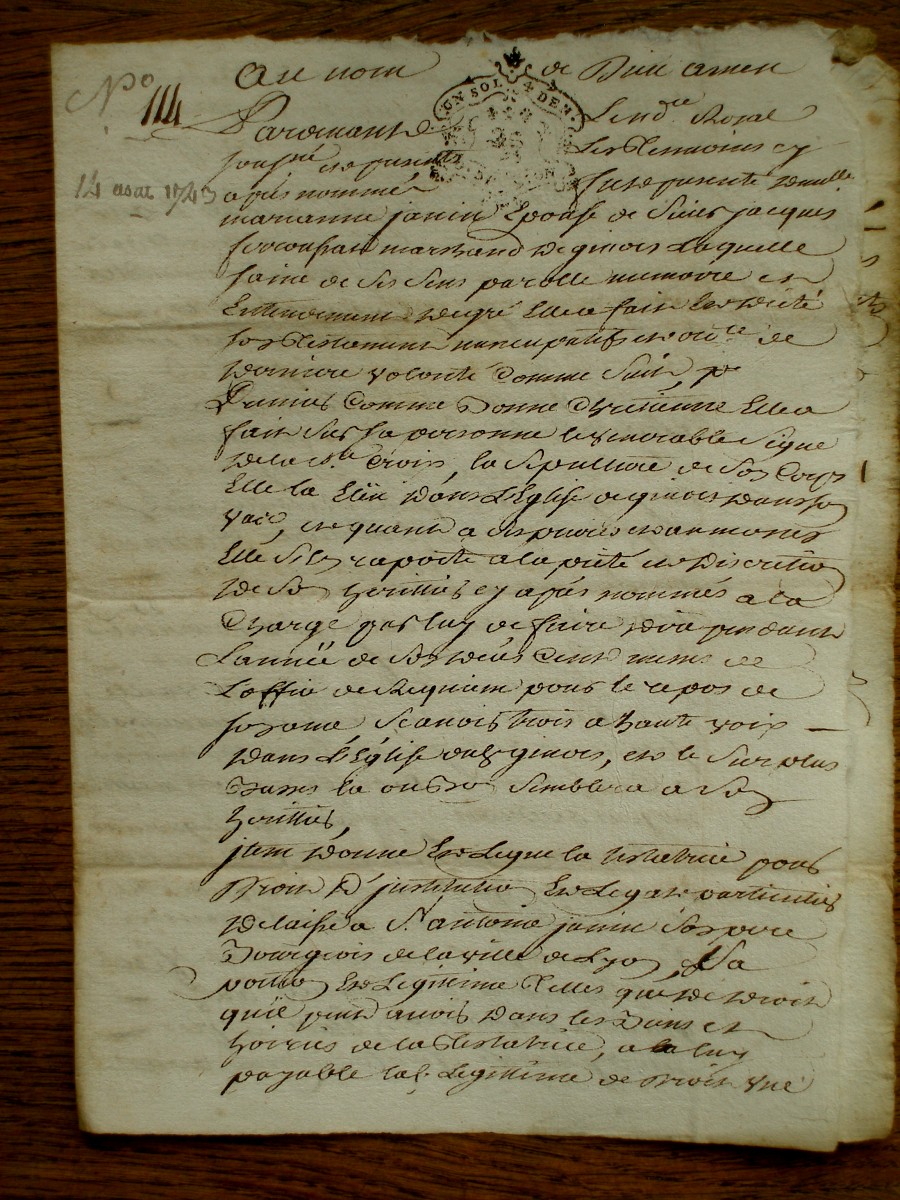 Nº 114
14 aout 1743
Au nom de Dieu amen
UN SOL 4 DEN.
Pardevant le nod.re Royal
soussigné et presents les tesmoins cy
apres nommés fut presente demlle
marianne janin Epouse de sieur jacques
marchand de ginois laquelle
saine de ses sens parolle memoire et
Entendement de gré Elle a fait et dicté
son testament nuncupatif et ord.ce de
derniere volonté comme suit, p.r
Premier comme bonne Chretienne Elle a
fait sur sa personne le venerable signe
de la ste Croix, la sepulture de son Corps
Elle la Elüe dans l'Eglise de ginois dans son
et quant a ses prieres et aumones
Elle s'en raporte a la pieté et Discretion
de son heritier cy apres nommés a la
Charge par luy de faire dire pendant
L'année de son deces Cent messes de
L'office de Requiem pour le repos de
son ame scavoir trois a haute voix
dans l'Eglise de ginois, et le surplus
la ou bon semblera a son
heritier,
jtem donne et legue la testatrice pour
Droit d'jnstitution et legat particulier
delaisse a Sr antoine janin son pere
Bourgeois de la ville de Lyon, Sa
portion et legitime telles que de droit
qu'il peut avoir dans les biens et
hoiries de la testatrice, a luy
payable lad. legittime de droit une